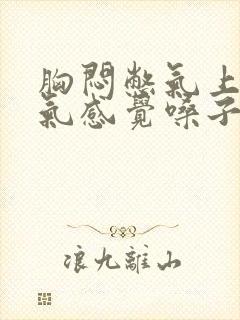 胸悶憋氣上
氣感覺嗓子
浪九離山